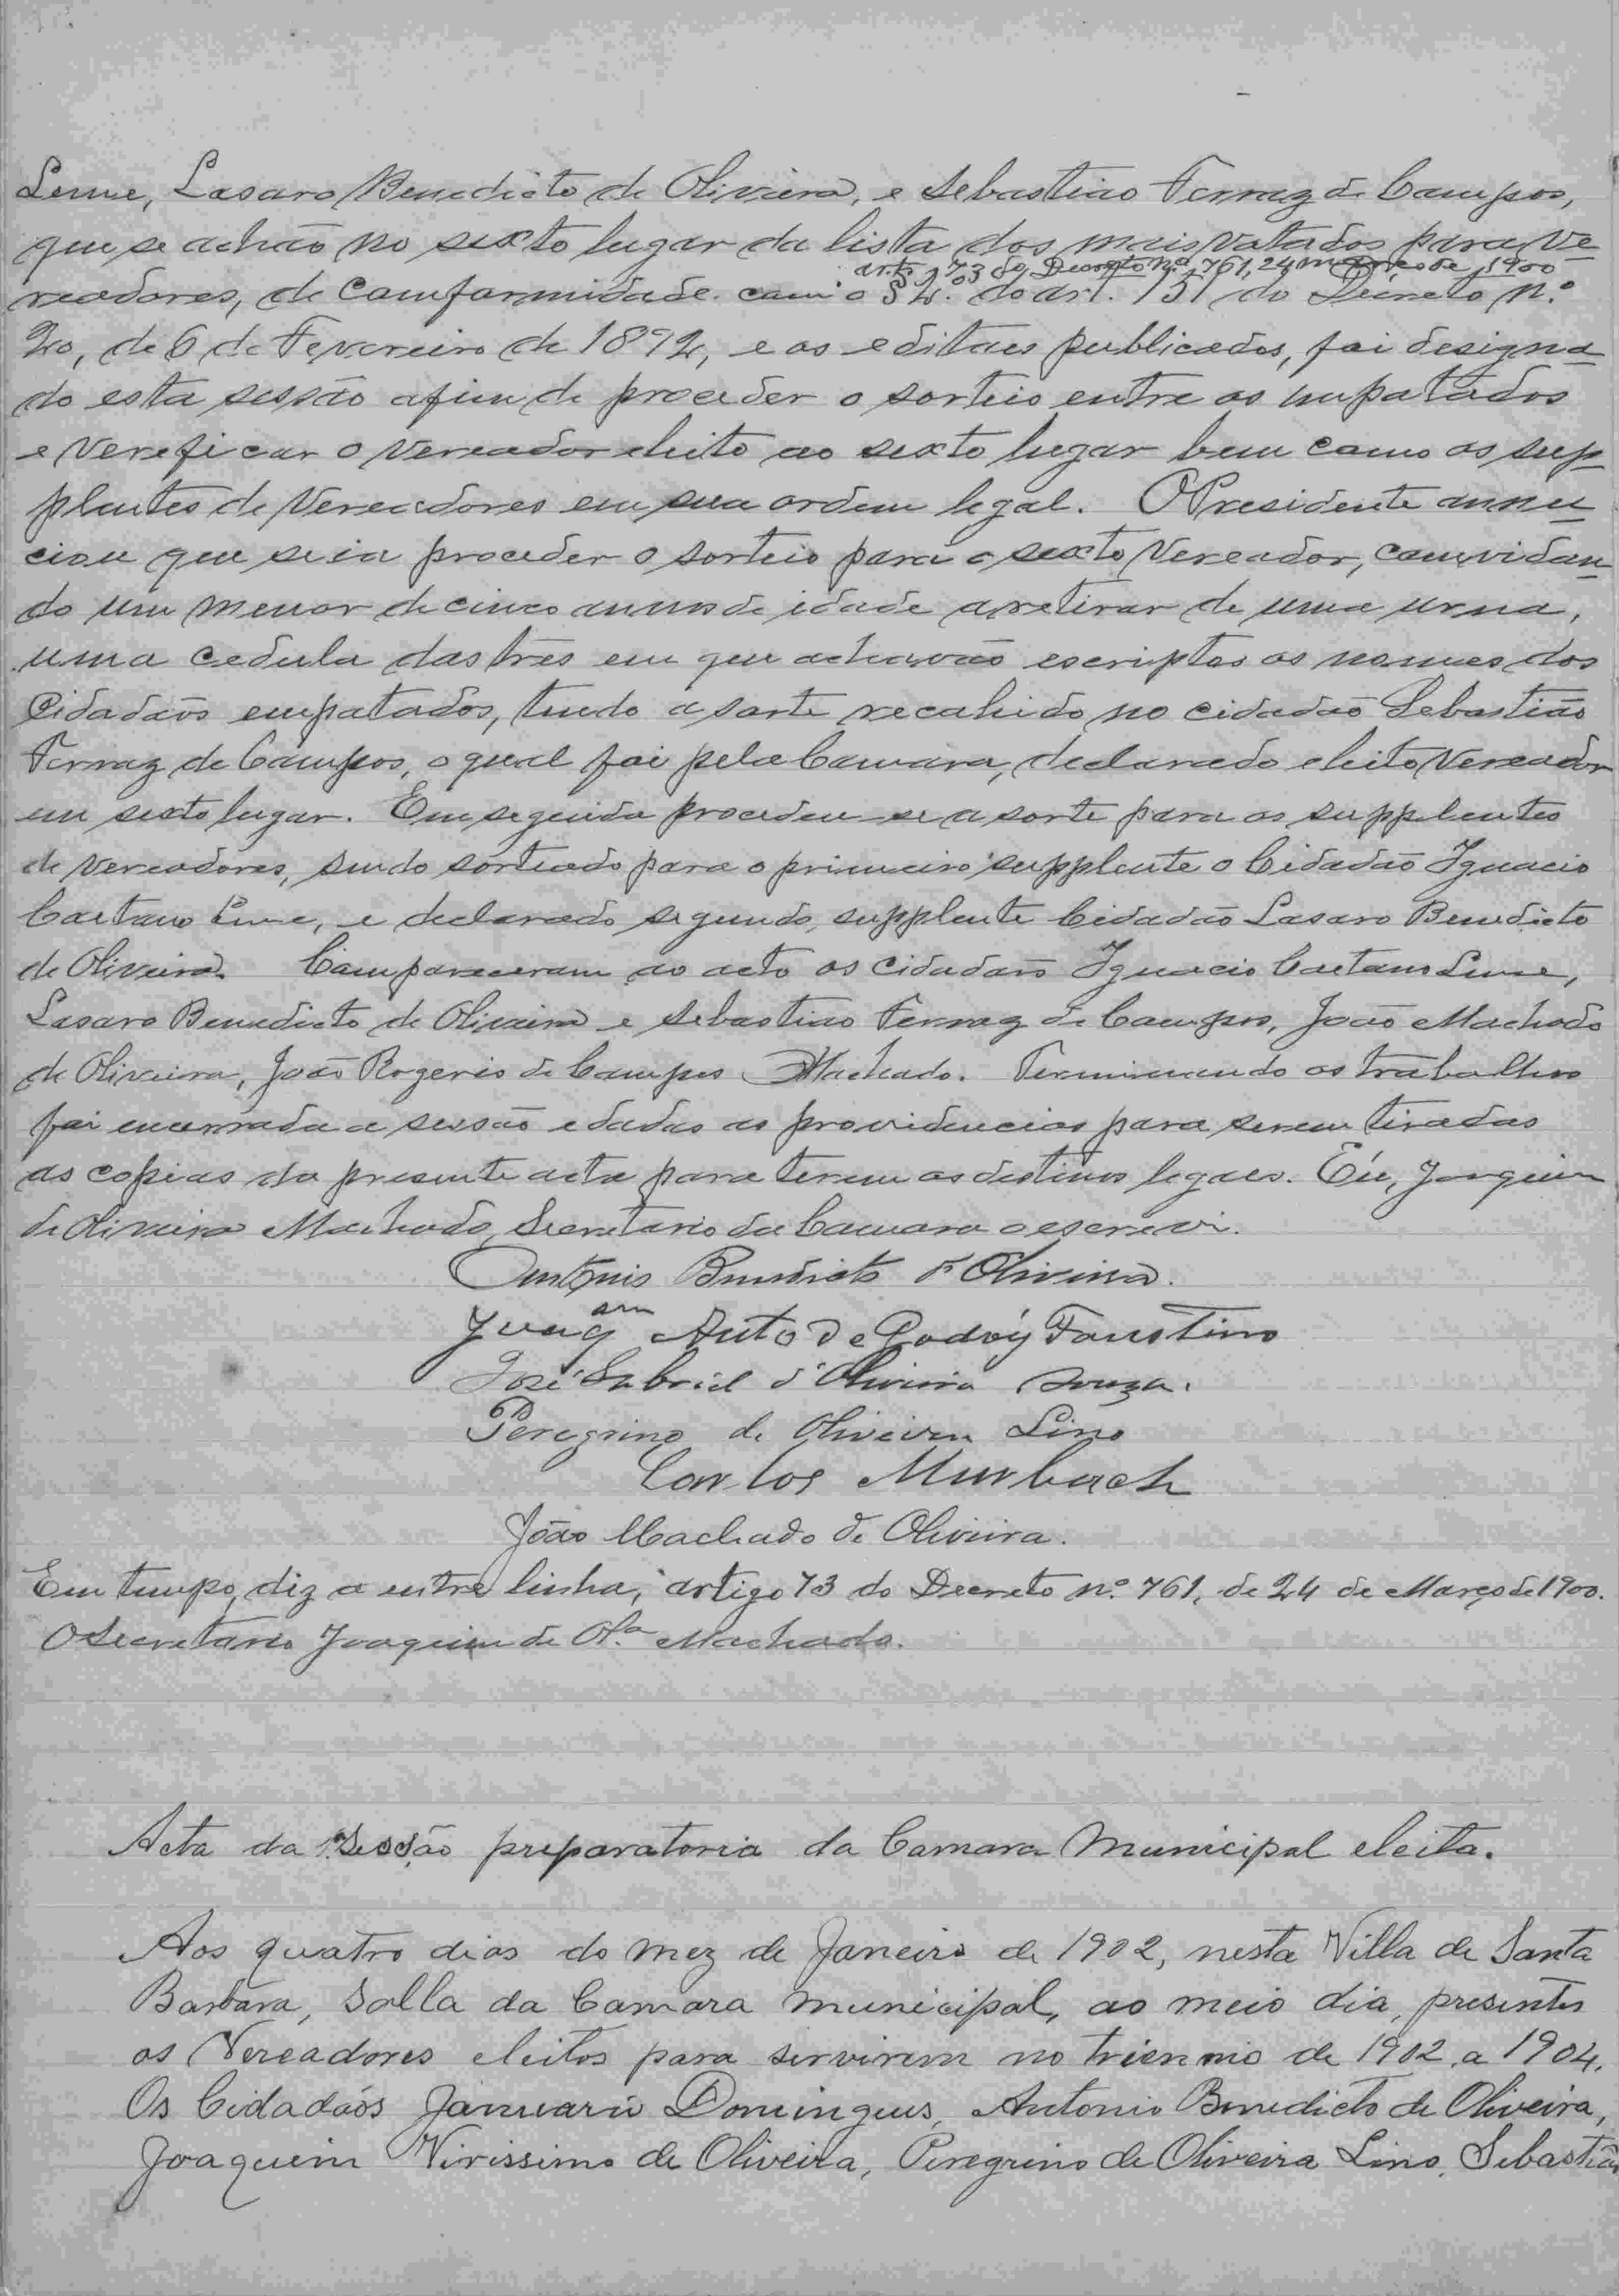 Leme, Lasaro Benedicto de Oliveira, e Sebastião Ferraz de Campos,
que se achão no sexto lugar da lista dos mais votados para ve
arto 73 do Decreto nº 761, 24 Março de 1900
readores, de comformidade com o § 2º. do art. 151 do Decreto n.º
20, de 6 de Fevereiro de 1892, e os editaes publicados, foi designa
do esta sessão afim de proceder o sorteio entre os impatados
e vereficar o vereador eleito ao sexto lugar bem como os sup
plentes de Vereadores em sua ordem legal. O Presidente annu
ciou que se ia proceder o sorteio para o sexto Vereador, comvidan
do um menor de cinco annos de idade a retirar de uma urna,
uma cedula das três em que achavão escriptos os nomes dos
Cidadãos empatados, tendo a sorte recahido no cidadão Sebastião
Ferraz de Campos, o qual foi pela Camara, declarado eleito Vereador
em sexto lugar. Em seguida procedeu-se a sorte para os supplentes
de Vereadores, sendo sorteado para o primeiro supplente o Cidadão Ignacio
Caetano Leme, e declarado segundo, supplente Cidadão Lasaro Benedicto
de Oliveira. Compareceram ao acto os cidadãos Ignacio Caetano Leme,
Lasaro Benedicto de Oliveira e Sebastião Ferraz de Campos, João Machado
de Oliveira, João Rogerio de Campos Machado. Terminando os trabalhos
foi encerrada a sessão e dadas as providencias para serem tiradas
as copias da presente acta para terem os destinos legaes. Eu, Joaquim
de Oliveira Machado, Secretario da Camara o escrevi.
Antonio Benedicto d'Oliveira.
Joaqm Anto de Godoy Faustino
José Gabriel d'Oliveira Souza.
Peregrino de Oliveira Lino
Carlos Murbach
João Machado de Oliveira.
Em tempo, diz a entre linha, artigo 73 do Decreto nº. 761, de 24 de Março de 1900.
O Secretario Joaquim de Olª Machado.
Acta da Sessão preparatoria da Camara Municipal eleita.
Aos quatro dias do mez de Janeiro de 1902, nesta Villa de Santa
Barbara, Salla da Camara Municipal, ao meio dia, presentes
os Vereadores eleitos para servirem no triennio de 1902 a 1904.
Os Cidadãos Januario Domingues, Antonio Benedicto de Oliveira,
Joaquim Virissimo de Oliveira, Peregrino de Oliveira Lino, Sebastião